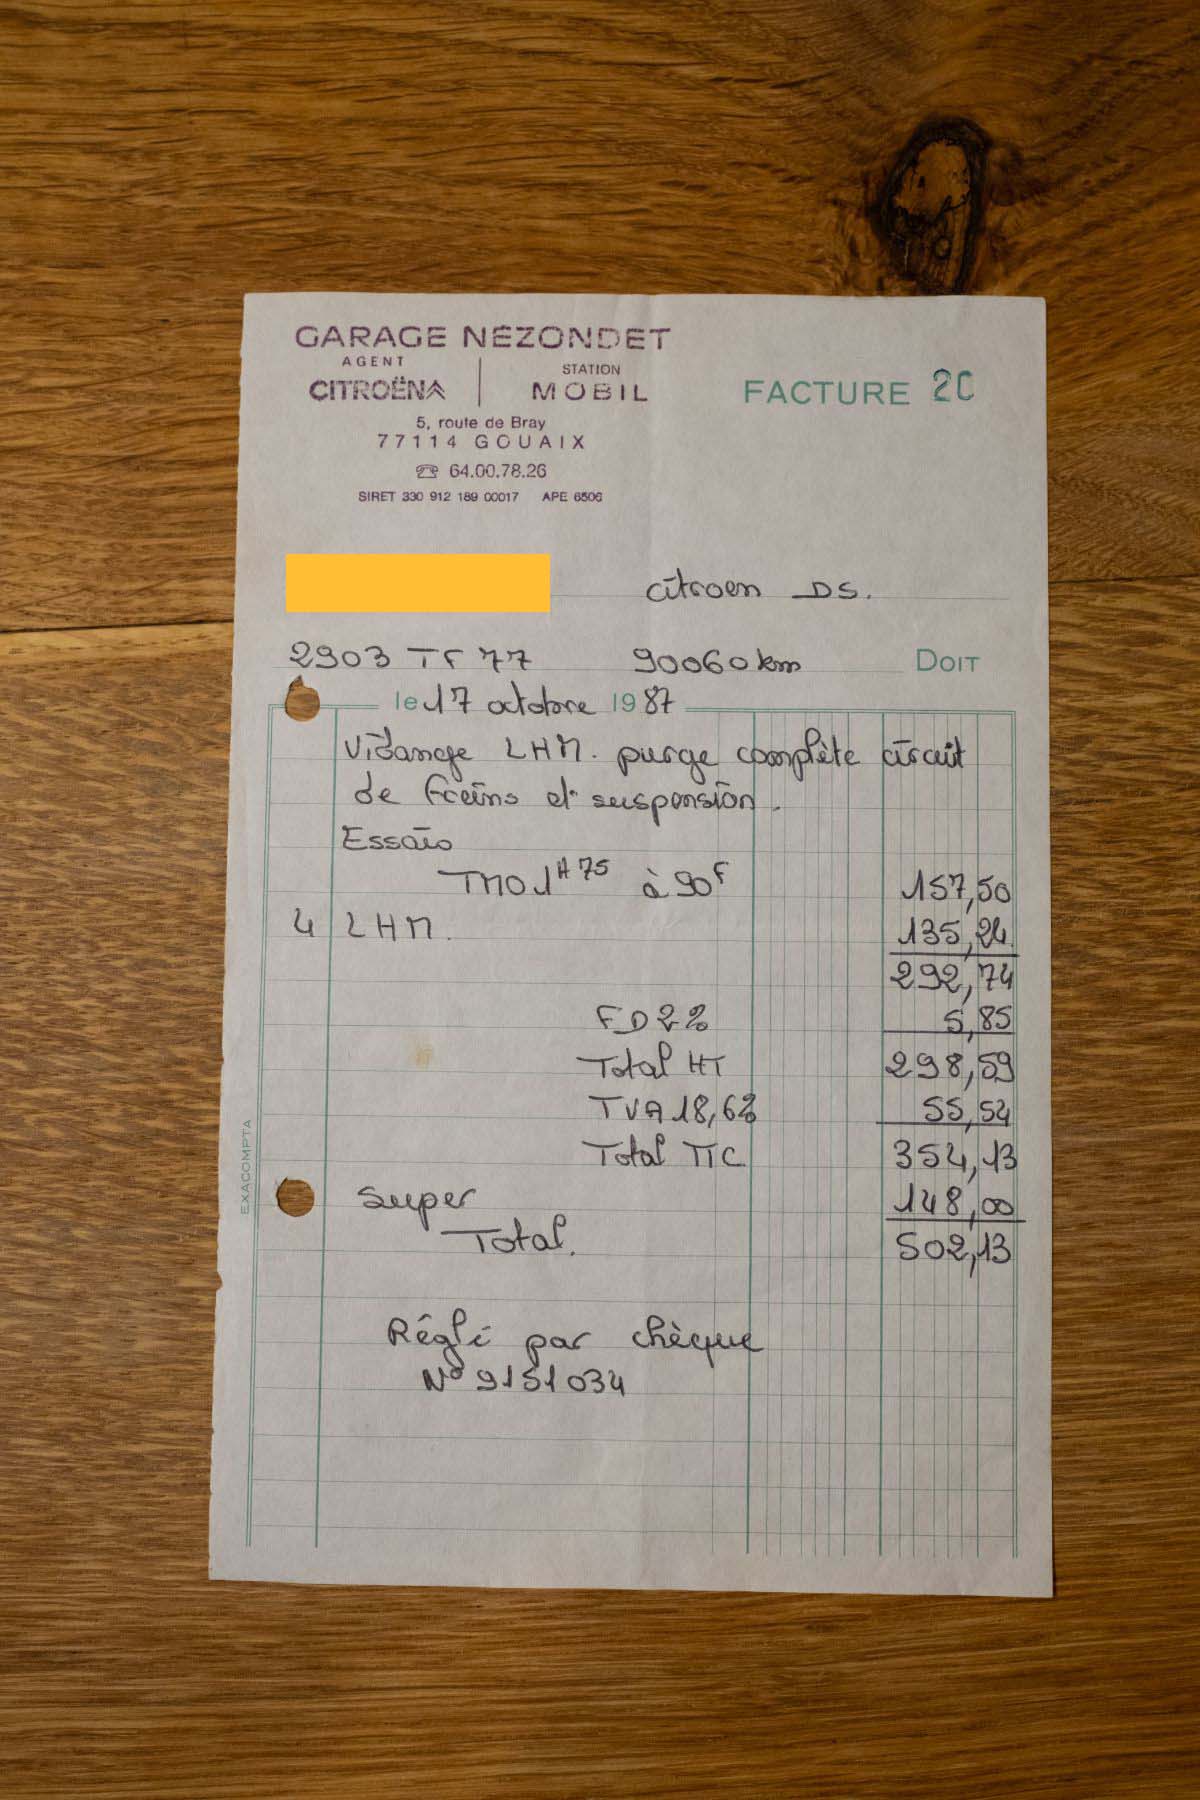 GARAGE NÉZONDET
AGENT
CITROËN
STATION
MOBIL
FACTURE 20
5, route de Bray
77114 GOUAIX
☎ 64.00.78.26
SIRET 330 912 189 00017 APE 6506
Citroen DS.
2903 TF 77 90060 km DOIT
le 17 octobre 1987
Vidange LHM. purge complète circuit
de freins et suspension.
Essais
TMO 1H75 à 90F 157,50
4 LHM. 135,24
292,74
FD 2% 5,85
Total HT 298,59
TVA 18,6% 55,54
Total TTC 354,13
Super 148,00
Total. 502,13
Réglé par chèque
N° 9151034
EXACOMPTA